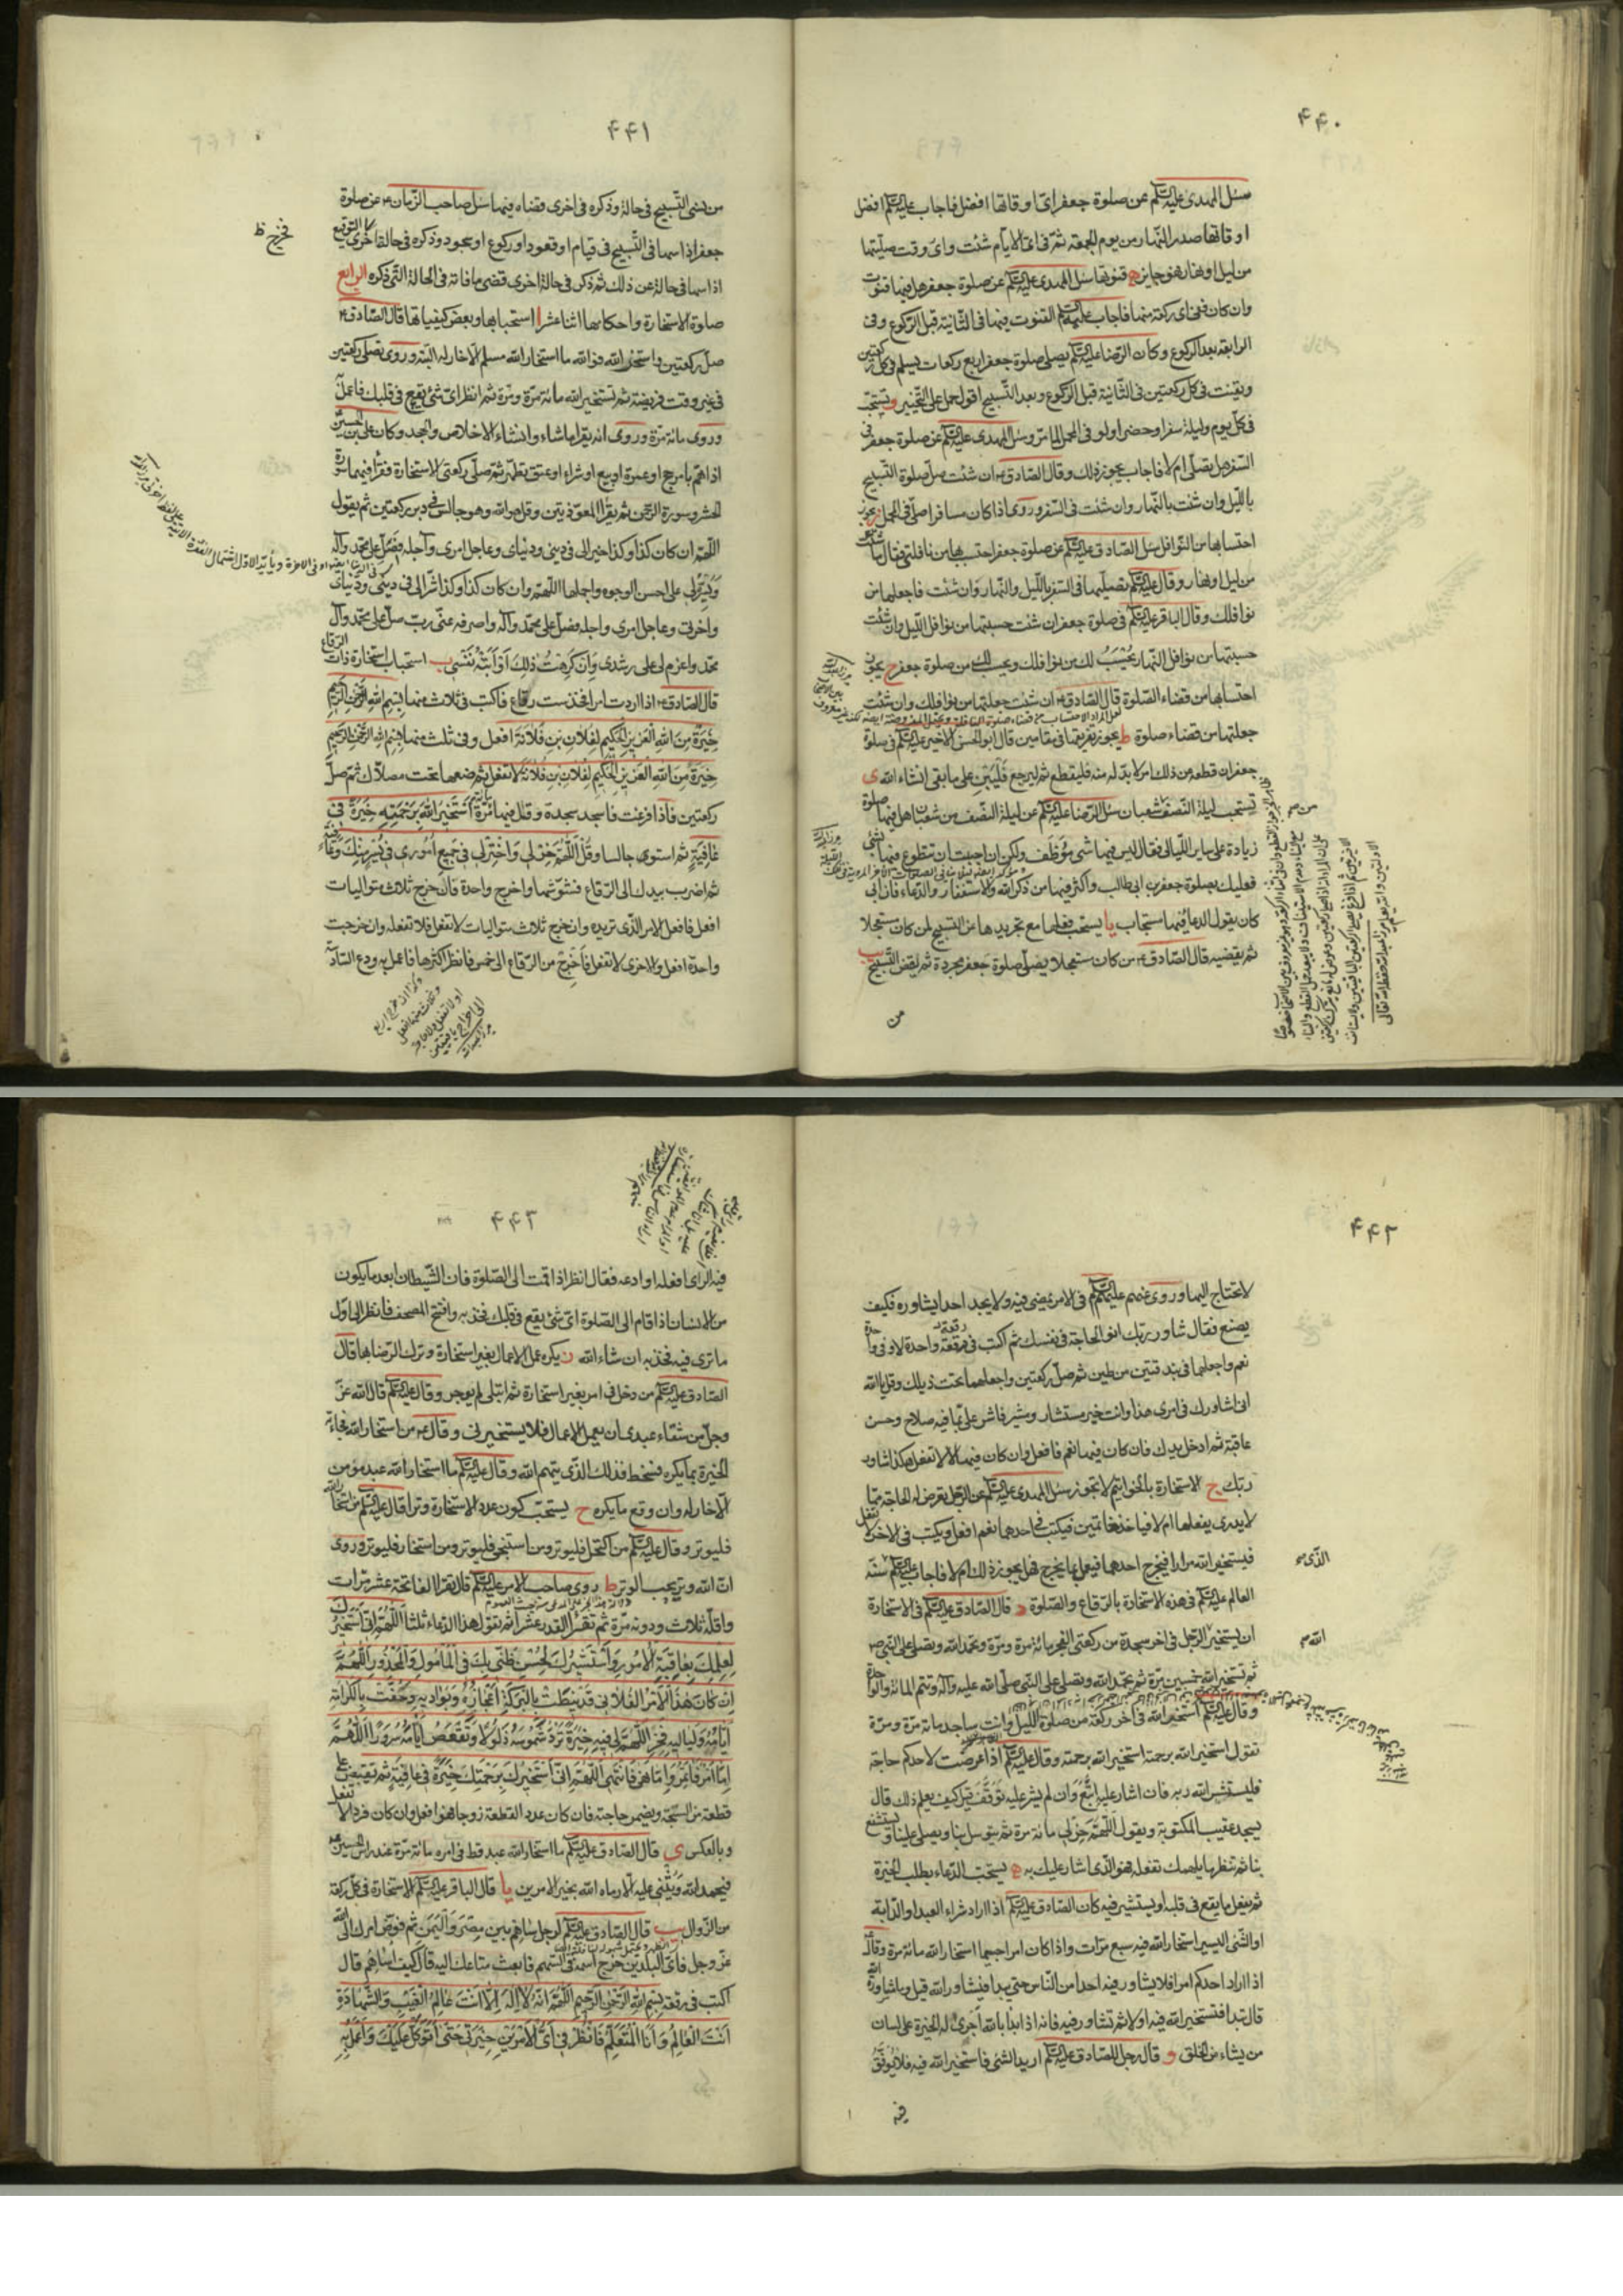 ۴۴۰
سئل المهدى عليه السلام عن صلوة جعفر اىّ اوقاتها افضل فاجاب عليه السلام افضل
اوقاتها صدر النهار من يوم الجمعة ثم فى اىّ الايام شئت واى وقت صليتها
من ليل او نهار فهو جايز ه قنوتها سئل المهدى عليه السلام عن صلوة جعفر هل فيها قنوت
وان كان ففى اى ركعة منها فاجاب عليه السلام القنوت فيها فى الثانية قبل الركوع وفى
الرابعة بعد الركوع وكان الرضا عليه السلام يصلى صلوة جعفر اربع ركعات يسلم فى كل ركعتين
ويقنت فى كل ركعتين فى الثانية قبل الركوع وبعد التسبيح اقول حمل على التخيير و تستحب
فى كل يوم وليلة سفرا وحضرا ولو فى المحمل لما مرّ وسئل المهدى عليه السلام عن صلوة جعفر فى
السفر هل تصلى ام لا فاجاب يجوز ذلك وقال الصادق ع ان شئت صل صلوة التسبيح
بالليل وان شئت بالنهار وان شئت فى السفر وروى اذا كان مسافرا صلى فى المحمل ز يجوز
احتسابها من النوافل سئل الصادق عليه السلام عن صلوة جعفر احتسب بها من نافلتى فقال ما شئت
من ليل او نهار وقال عليه السلام تصليها فى السفر بالليل والنهار وان شئت فاجعلها من
نوافلك وقال الباقر عليه السلام فى صلوة جعفر ان شئت حسبتها من نوافل الليل وان شئت
حسبتها من نوافل النهار تُحْسَبُ لك من نوافلك وتحسب لك من صلوة جعفر ح يجوز
احتسابها من قضاء الصلوة قال الصادق ع ان شئت جعلتها من نوافلك وان شئت
جعلتها من قضاء صلوة ط يجوز تفريقها فى مقامين قال ابو الحسن الاخير عليه السلام فى صلوة
جعفر ان قطعه عن ذلك امر لا بد له منه فليقطع ثم ليرجع فَلْيَبْنِ على ما بقى انشاء الله ى
تستحب ليلة النصف شعبان سئل الرضا عليه السلام عن ليلة النصف من شعبان هل فيها صلوة
زيادة على ساير الليالى فقال ليس فيها شئ مُوَظَّف ولكن ان احببت ان تتطوع فيها بشئ
فعليك بصلوة جعفر بن ابى طالب واكثر فيها من ذكر الله والاستغفار والدعاء فان ابى
كان يقول الدعاء فيها مستجاب يا يستحب فعلها مع تجريدها عن التسبيح لمن كان مستعجلا
ثم يقضيه قال الصادق ع من كان مستعجلا يصلى صلوة جعفر مجردة ثم ليقض التسبيح يب
من
۴۴۱
من نسى التسبيح فى حالة وذكره فى اخرى قضاه فيها سئل صاحب الزمان ع عن صلوة
جعفر اذا سها فى التسبيح فى قيام او قعود او ركوع او سجود وذكره فى حالة اخرى التوقيع
اذا سها فى حالة عن ذلك ثم ذكر فى حالة اخرى قضى ما فاته فى الحالة التى ذكره الرابع
صلوة الاستخارة واحكامها اثنا عشر ا استحبابها وبعض كيفياتها قال الصادق ع
صل ركعتين واستخر الله فوالله ما استخار الله مسلم الا خار له البتة وروى تصلى ركعتين
فى غير وقت فريضة ثم تستخير الله مائة مرة ومرة ثم انظر اى شئ يقع فى قلبك فاعمل
وروى مائة مرة وروى انه يقرأ ما شاء وانشاء الاخلاص والجحد وكان على بن الحسين
اذا همّ بامر حج او عمرة او بيع او شراء او عتق تطهر ثم صلى ركعتى الاستخارة فقرأ فيهما سورة
الحشر وسورة الرحمن ثم يقرأ المعوذتين وقل هو الله وهو جالس فى دبر ركعتين ثم يقول
اللهم ان كان كذا وكذا خيرا لى فى دينى ودنياى وعاجل امرى وآجله فصل على محمد وآله
ويسره لى على احسن الوجوه واجملها اللهم وان كان كذا وكذا شرا لى فى دينى ودنياى
واخرتى وعاجل امرى واجله فصل على محمد وآله واصرفه عنى رب صل على محمد وآل
محمد واعزم لى على رشدى وَاِنْ كَرِهَتْ ذلِكَ اَوْ اَبَتْهُ نَفْسى ب استحباب استخارة ذات الرقاع
قال الصادق ع اذا اردت امرا فخذ ست رقاع فاكتب فى ثلاث منها بسم الله الرحمن الرحيم
خِيَرَةٌ مِنَ اللهِ الْعَزيزِ الْحَكيمِ لِفُلانِ بْنِ فُلانَةَ افعل وفى ثلث منها بسم الله الرحمن الرحيم
خِيَرَةٌ مِنَ اللهِ الْعَزيزِ الْحَكيمِ لِفُلانِ بْنِ فُلانَةَ لا تفعل ثم ضعها تحت مصلاك ثم صل
ركعتين فاذا فرغت فاسجد سجدة وقل فيها مائة مرة اَسْتَخيرُ اللهَ بِرَحْمَتِهِ خِيَرَةً فى
عافِيَةٍ ثم استوى جالسا وقُلْ اللّهُمَّ خِرْ لى وَاخْتَرْ لى فى جَميعِ اُمُورى فى يُسْرٍ مِنْكَ وَعافِيَة
ثم اضرب بيدك الى الرقاع فشوّشها واخرج واحدة فان خرج ثلاث متواليات
افعل فافعل الامر الذى تريده وان خرج ثلاث متواليات لا تفعل فلا تفعله وان خرجت
واحدة افعل والاخرى لا تفعل فاَخْرِج من الرقاع الى خمس فانظر اكثرها فاعمل به ودع السادسة
۴۴۲
لا تحتاج اليها وروى عنهم عليهم السلام فى الامر يمضى فيه ولا يجد احدا يشاوره فكيف
يصنع فقال شاور ربك انو الحاجة فى نفسك ثم اكتب فى رقعة واحدة لا وفى واحدة
نعم واجعلها فى بندقتين من طين ثم صل ركعتين واجعلهما تحت ذيلك وقل يا الله
انى اشاورك فى امرى هذا وانت خير مستشار ومشير فاشر على بما فيه صلاح وحسن
عاقبة ثم ادخل يدك فان كان فيها نعم فافعل وان كان فيها لا لا تفعل هكذا شاور
ربك ج الاستخارة بالخواتيم لا تجوز سئل المهدى عليه السلام عن الرجل تعرض له الحاجة مما
لا يدرى يفعلها ام لا فياخذ خاتمين فيكتب فى احدهما نعم افعل ويكتب فى الاخر لا تفعل
فيستخير الله مرارا فيخرج احدهما فيعمل بما يخرج فهل يجوز ذلك ام لا فاجاب عليه السلام سنة
العالم عليه السلام فى هذه الاستخارة بالرقاع والصلوة د قال الصادق عليه السلام فى الاستخارة
ان يستخير الرجل فى اخر سجدة من ركعتى الفجر مائة مرة ومرة وتحمد الله وتصلى على النبى ص
ثم تستخير الله خمسين مرة ثم تحمد الله وتصلى على النبى صلى الله عليه وآله وتتم المائة والواحدة
وقال عليه السلام استخير الله فى آخر ركعة من صلوة الليل وانت ساجد مائة مرة ومرة
تقول استخير الله برحمته استخير الله برحمته وقال عليه السلام اذا عرضت لاحدكم حاجة
فليستشر الله ربه فان اشار عليه اتبع وان لم يشر عليه توقف قيل كيف يعلم ذلك قال
يسجد عقيب المكتوبة ويقول اللهم خر لى مائة مرة ثم يتوسل بنا ويصلى علينا ويستشفع
بنا ثم تنظر ما يلهمك تفعله فهو الذى اشار عليك به ه يستحب الدعاء بطلب الخيرة
ثم يفعل ما يقع فى قلبه او يستشير فيه كان الصادق عليه السلام اذا اراد شراء العبد او الدابة
او الشئ اليسير استخار الله فيه سبع مرات واذا كان امرا جسيما استخار الله مائة مرة وقال
اذا اراد احدكم امرا فلا يشاور فيه احدا من الناس حتى يبدأ فيشاور الله قيل وما مشاورة الله
قال تبدا فتستخير الله فيه اولا ثم تشاور فيه فانه اذا بدأ بالله اَجرى له الخيرة على لسان
من يشاء من الخلق و قال رجل للصادق عليه السلام اريد الشئ فاستخير الله فيه فلا يُوَفَّقُ
فيه
۴۴۳
فيه الراى افعله او ادعه فقال انظر اذا قمت الى الصلوة فان الشيطان ابعد ما يكون
من الانسان اذا قام الى الصلوة اىّ شئ يقع فى قلبك فخذ به وافتح المصحف فانظر الى اوّل
ما ترى فيه فخذ به ان شاء الله ز يكره عمل الاعمال بغير استخارة وترك الرضا بها قال
الصادق عليه السلام من دخل فى امر بغير استخارة ثم ابتلى لم يوجر وقال عليه السلام قال الله عز
وجل من شقاء عبدى ان يعمل الاعمال فلا يستخيرنى وقال ع من استخار الله فجاءته
الخيرة بما يكره فسخط فذلك الذى يتهم الله وقال عليه السلام ما استخار الله عبد مؤمن
الا خار له وان وقع ما يكره ح يستحب كون عدد الاستخارة وترا قال عليه السلام من استخار الله
فليوتر وقال عليه السلام من اكتحل فليوتر ومن استنجى فليوتر ومن استخار فليوتر وروى
ان الله وتر يحب الوتر ط روى صاحب الامر عليه السلام قال تقرا الفاتحة عشر مرات
واقله ثلاث ودونه مرة ثم تقرا القدر عشرا ثم تقول هذا الدعاء ثلثا اَللّهُمَّ اِنّى اَسْتَخيرُكَ
لِعِلْمِكَ بِعاقِبَةِ الْاُمُورِ وَاَسْتَشيرُكَ لِحُسْنِ ظَنّى بِكَ فى الْمَأْمُولِ وَالْمَحْذُورِ اَللّهُمَّ
اِنْ كانَ هذَا الْاَمْرُ الْفُلانِىُّ قَدْ نيطَتْ بِالْبَرَكَةِ اَعْجازُهُ وَبَواديهِ وَحُفَّتْ بِالْكَرامَةِ
اَيّامُهُ وَلَياليهِ فَخِرِ اللّهُمَّ لى فيهِ خِيَرَةً تَرُدُّ شَمُوسَهُ ذَلُولاً وَتَقْعَضُ اَيّامَهُ سُرُوراً اَللّهُمَّ
اِمّا اَمْرٌ فَأَتَمِرُ وَاِمّا نَهْىٌ فَاَنْتَهى اَللّهُمَّ اِنّى اَسْتَخيرُكَ بِرَحْمَتِكَ خِيَرَةً فى عافِيَةٍ ثم تقبض على
قطعة من السبحة ويضمر حاجته فان كان عدد القطعة زوجا فهو افعل وان كان فردا لا تفعل
وبالعكس ى قال الصادق عليه السلام ما استخار الله عبد قط فى امره مائة مرة عند راس الحسين ع
فيحمد الله ويُثْنى عليه الا رماه الله بخير الامرين يا قال الباقر عليه السلام الاستخارة فى كل ركعة
من الزوال يب قال الصادق عليه السلام لرجل ساهِم بين مِصْرَ وَالْيَمَنِ ثم فوض امرك الى الله
عز وجل فاى البلدين خرج اسمه فى السهم فابعث متاعك اليه قال كيف اساهم قال
اكتب فى رقعة بسم الله الرحمن الرحيم اَللّهُمَّ اِنَّهُ لا اِلهَ اِلّا اَنْتَ عالِمُ الْغَيْبِ وَالشَّهادَةِ
اَنْتَ الْعالِمُ وَاَنَا الْمُتَعَلِّمُ فَانْظُرْ فى اَىِّ الْاَمْرَيْنِ خِيَرَتى حَتّى اَتَوَكَّلَ عَلَيْكَ وَاَعْمَلَ بِهِ